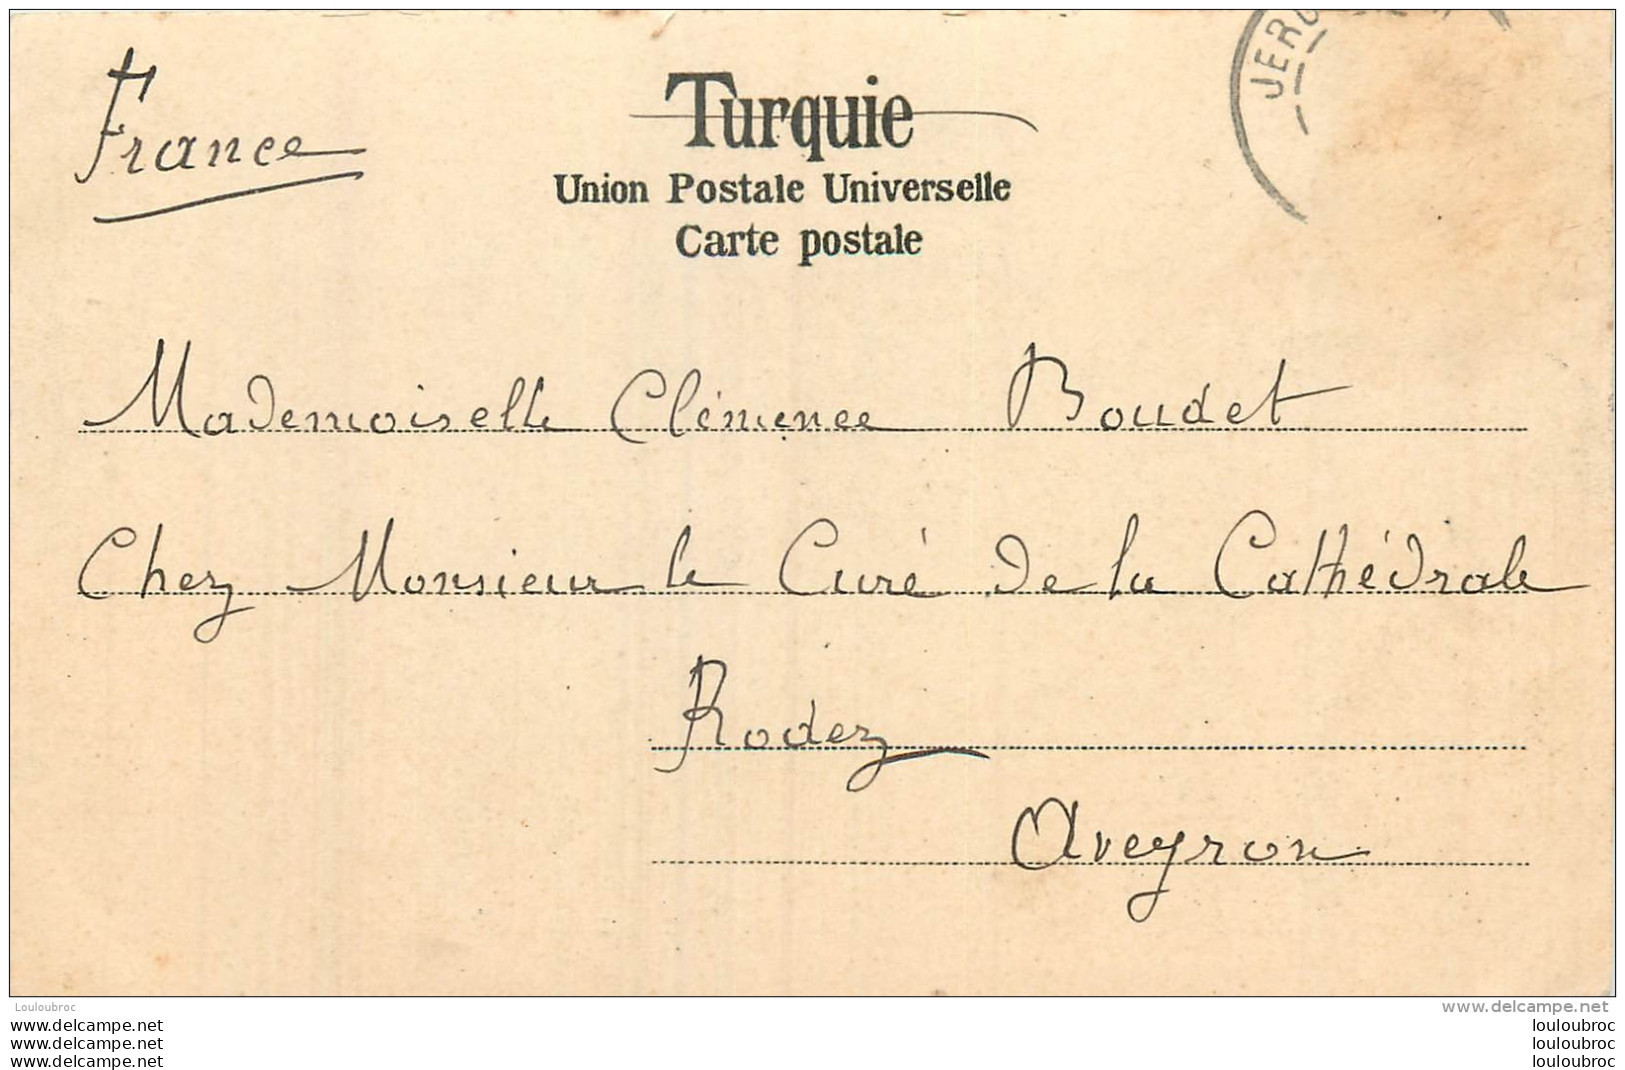 JERU
France
Turquie
Union Postale Universelle
Carte postale
Mademoiselle Clémence Boudet
Chez Monsieur le Curé de la Cathédrale
Rodez
Aveyron
Louloubroc
www.delcampe.net
www.delcampe.net
www.delcampe.net
www.delcampe.net
louloubroc
louloubroc
louloubroc